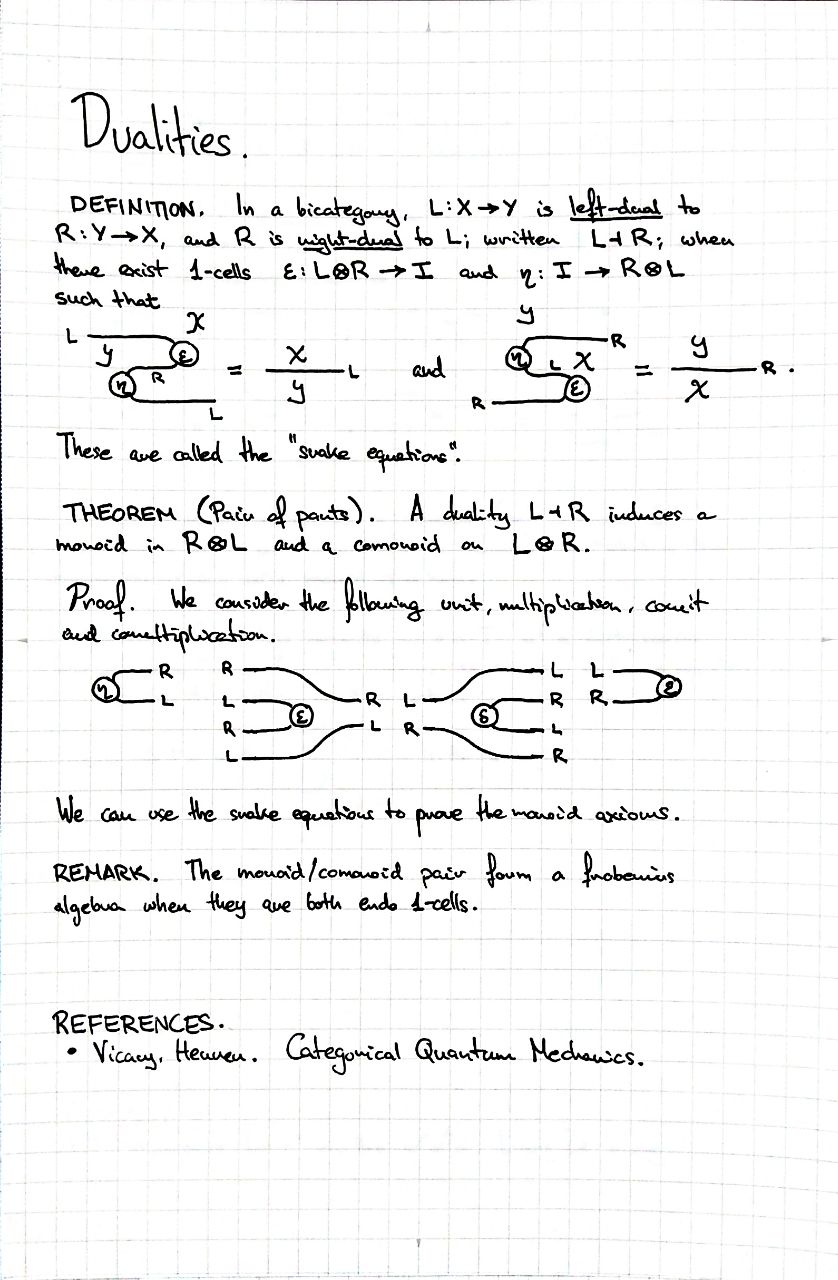 Dualities.
DEFINITION. In a bicategory, L:X→Y is left-dual to
R:Y→X, and R is right-dual to L; written L⊣R; when
there exist 1-cells ε:L⊗R→I and η:I→R⊗L
such that
L X y ε η R L = X y L and y η R L X ε R = y X R .
These are called the "snake equations".
THEOREM (Pair of pants). A duality L⊣R induces a
monoid in R⊗L and a comonoid on L⊗R.
Proof. We consider the following unit, multiplication, counit
and comultiplication.
η R R L L
L L ε R L δ R R ε
R L R L
L R
We can use the snake equations to prove the monoid axioms.
REMARK. The monoid/comonoid pair form a frobenius
algebra when they are both endo 1-cells.
REFERENCES.
• Vicary, Heunen. Categorical Quantum Mechanics.